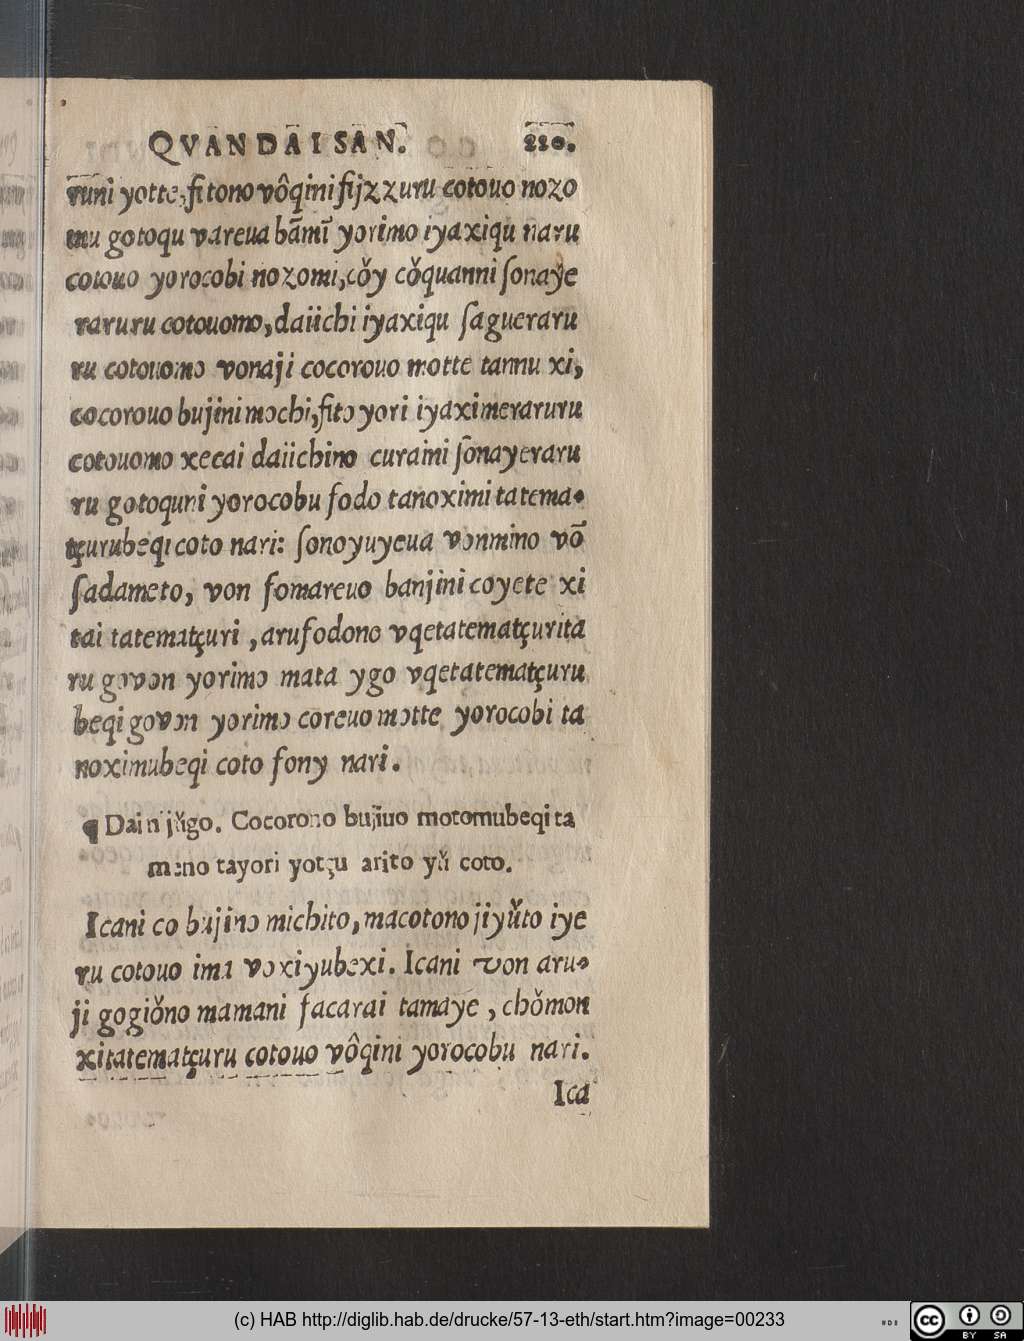 QVANDAI SAN. 220.
runi yotte, fitono vǒqini fijzzuru cotouo nozo
mu gotoqu vareua bāmĩ yorimo iyaxiqu naru
cotouo yorocobi nozomi, cǒy cǒquanni ſonaye
raruru cotouomo, daiichi iyaxiqu ſagueraru
ru cotouomo vonaji cocorouo motte tannu xi,
cocorouo bujini mochi, fito yori iyaximeraruru
cotouomo xecai daiichino curaini ſonayeraru
ru gotoquni yorocobu fodo tanoximi tatema-
tçurubeqi coto nari: ſonoyuyeua vonmino võ
ſadameto, von fomareuo banjini coyete xi
tai tatematçuri, arufodono vqetatematçurita
ru govon yorimo mata ygo vqetatematçuru
beqi govon yorimo coreuo motte yorocobi ta
noximubeqi coto fony nari.
¶ Dai njǔgo. Cocorono bujiuo motomubeqi ta
meno tayori yotçu arito yǔ coto.
Icani co bujino michito, macotono jiyǔto iye
ru cotouo ima voxiyubexi. Icani von aru-
ji gogiǒno mamani facarai tamaye, chǒmon
xitatematçuru cotouo vôqini yorocobu nari.
Ica
(c) HAB http://diglib.hab.de/drucke/57-13-eth/start.htm?image=00233
cc BY SA